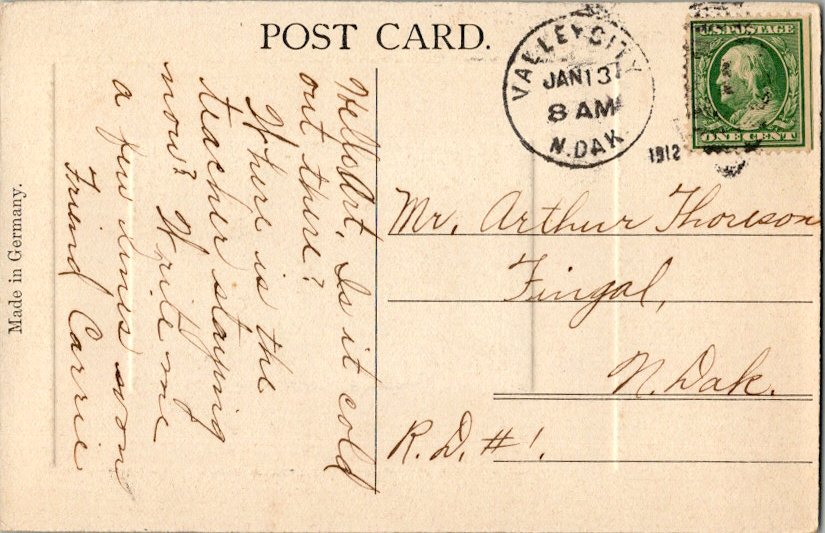 POST CARD.
VALLEY CITY
JAN 13
8 AM
N. DAK
1912
U.S. POSTAGE
ONE CENT
Made in Germany.
Hello Art, Is it cold
out there?
Where is the
teacher staying
now? Write me
a few lines soon
Friend Carrie
Mr. Arthur Thoreson
Fingal,
N. Dak.
R.D. #1.